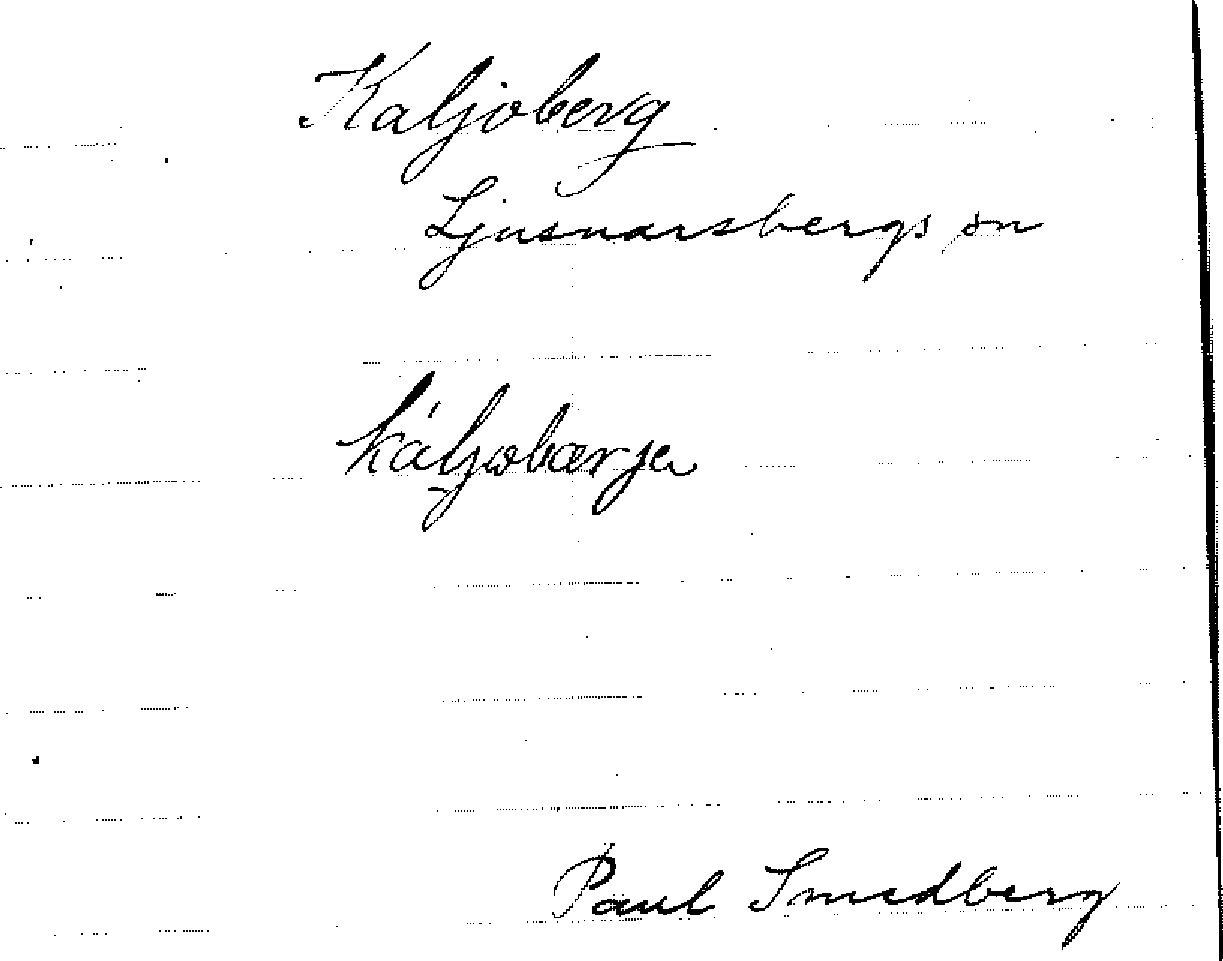 Kaljoberg
Ljusnarsbergs sn
káljobærja
Paul Smedberg